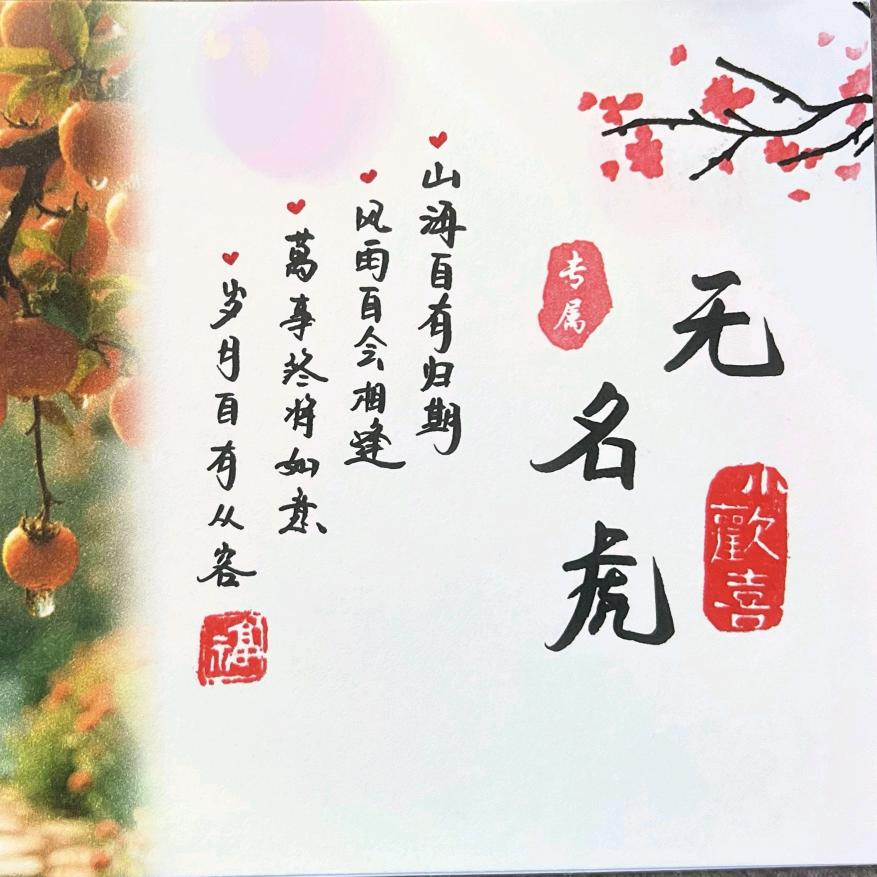 无名虎
小歡喜
专属
山海自有归期
风雨自会相逢
萬事终将如意
岁月自有从容
福